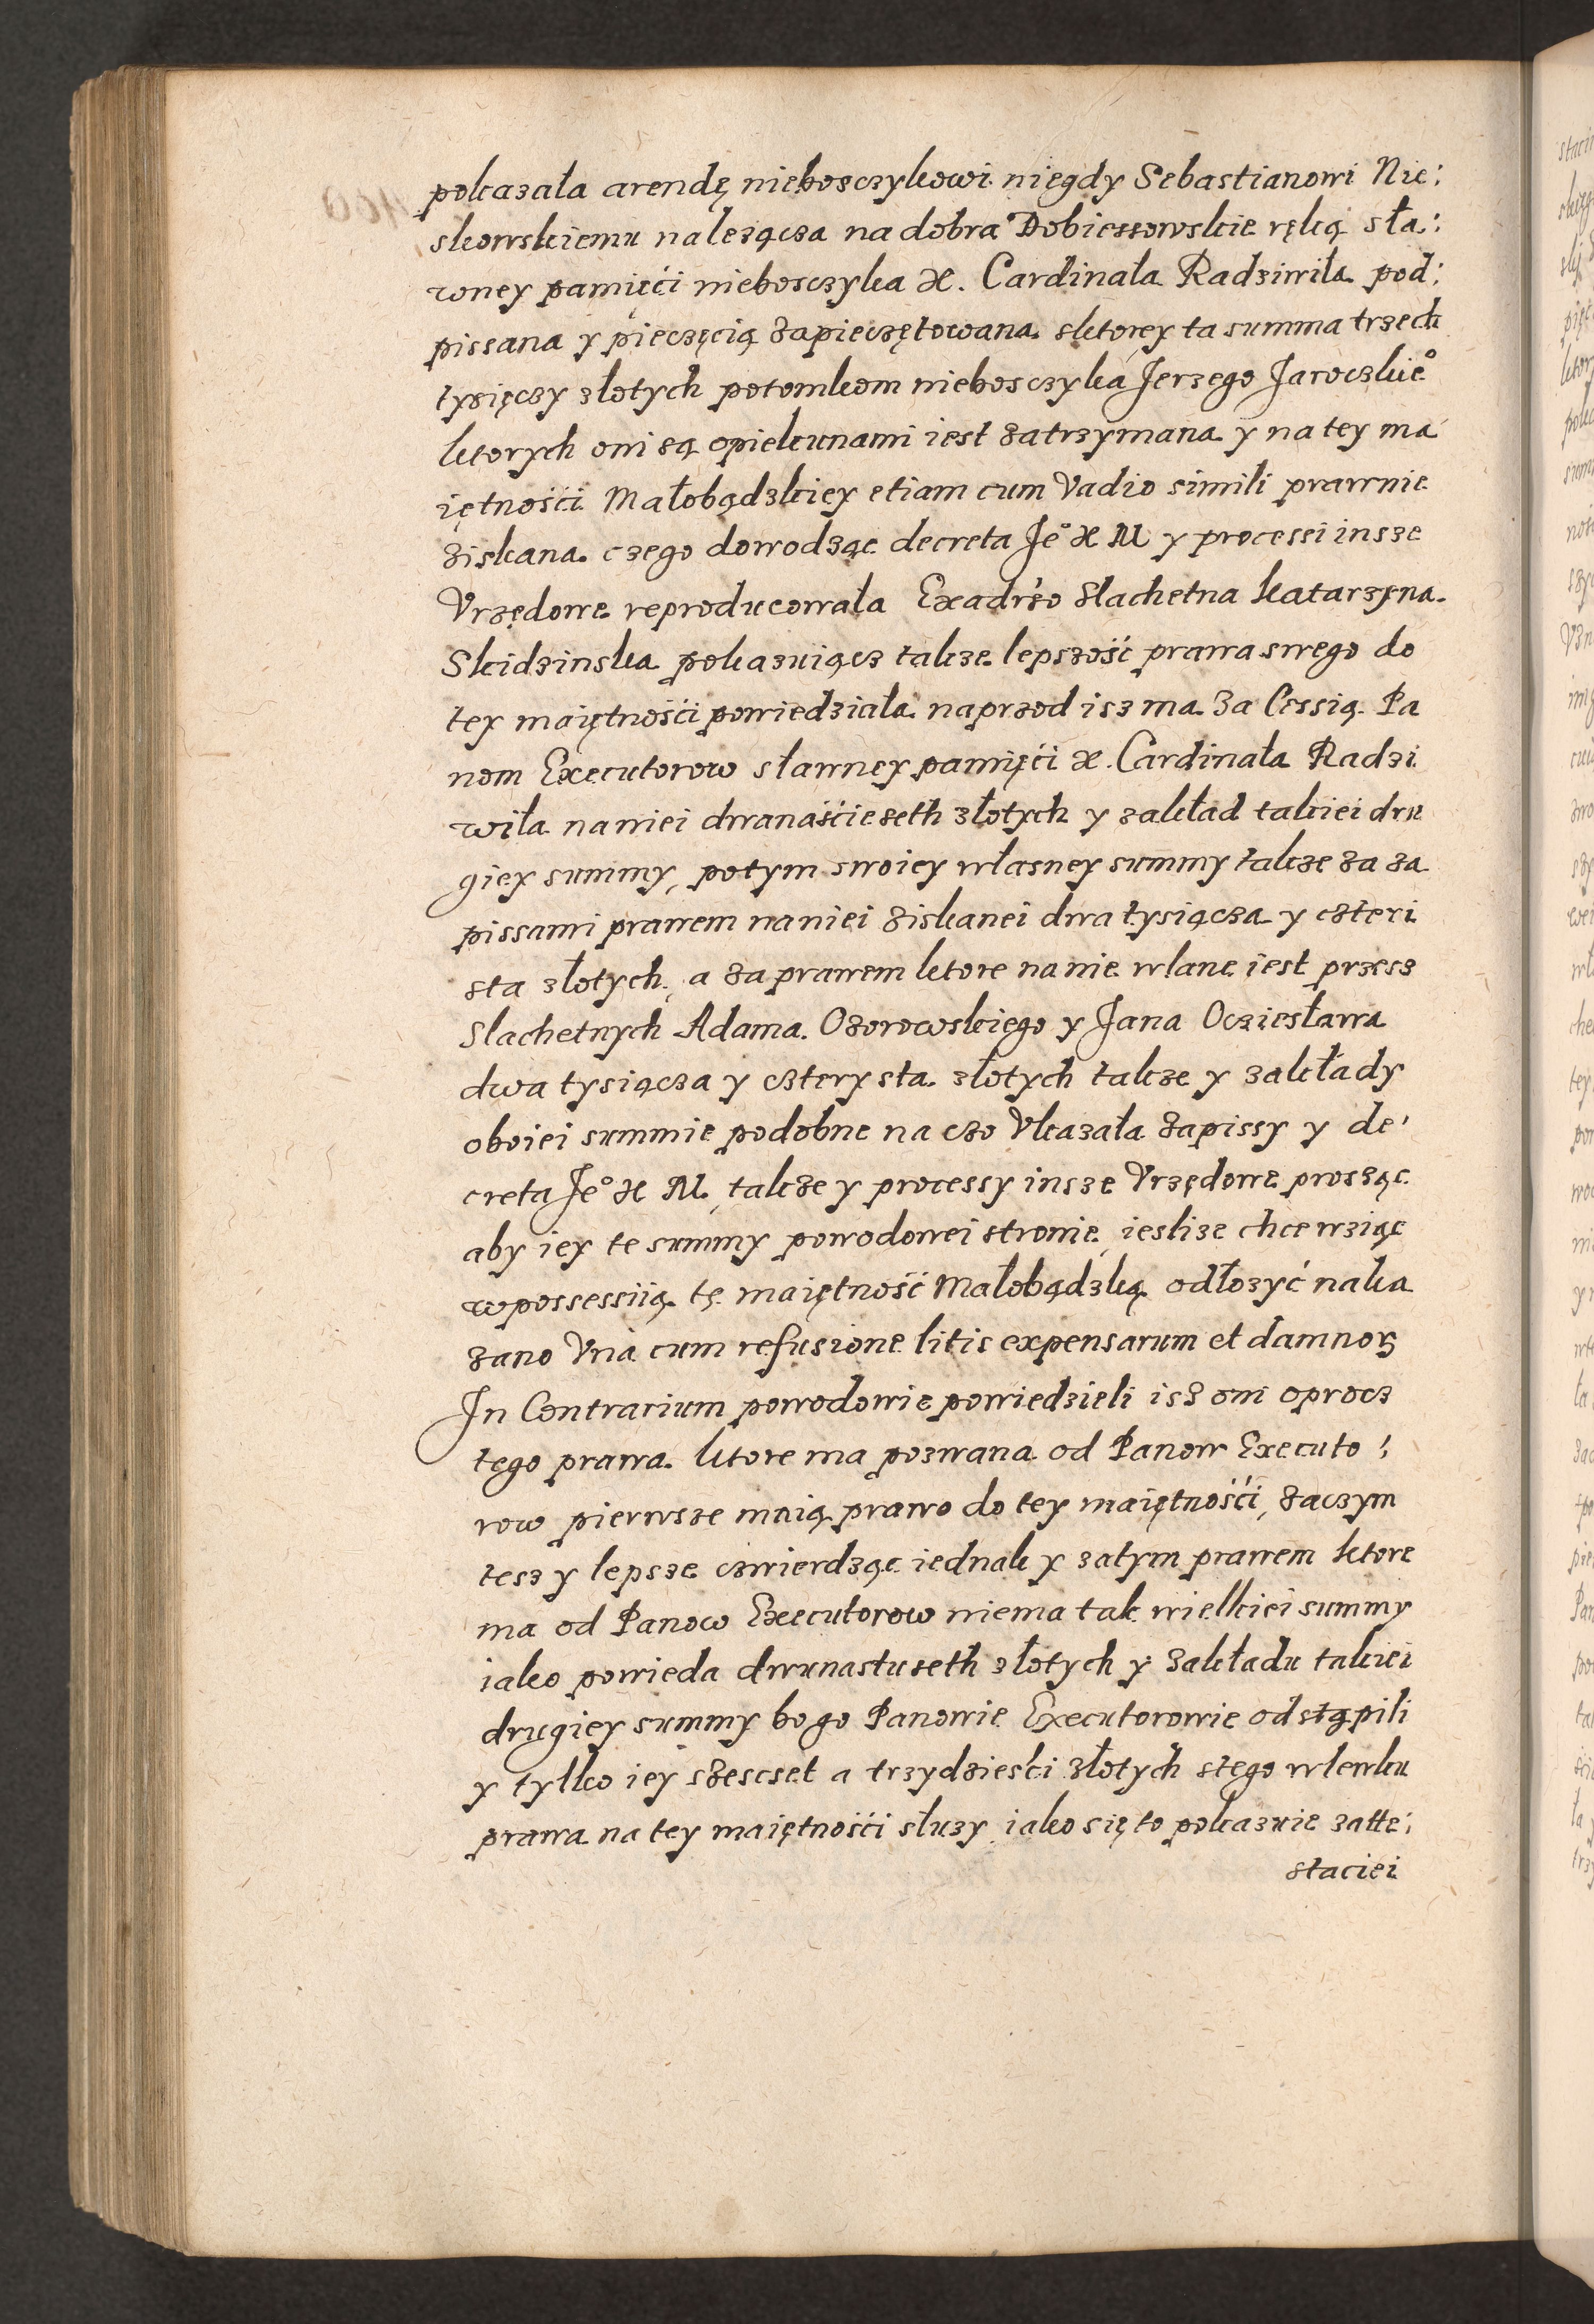 pokazała arendę nieboszczykowi niegdy Sebastianowi Nie:
skowskiemu należącza na dobra Dobiessowskie ręką sła:
wney pamięći niebosczyka X. Cardinała Radziwiła pod:
pissana y pieczęcią zapieczętowana. sktorey ta summa trzech
tysięczy złotych potomkom niebosczyka Jerzego Jaroczkie°
ktorych oni są opiekunami iest zatrzymana y na tey ma
iętnośći Małobądzkiey etiam cum Vadio simili prawnie
ziskana. czego dowodząc decreta Je° K M y processi insze
Vrzędowe reproducowała Exadrso slachetna Katarzyna.
Skidzinska pokazuiącz takze lepszość prawa swego do
tey maiętnośći powiedziała naprzod isz ma za Cessią Pa
nom Executorow sławney pamięći X. Cardinała Radzi
wiła naniei dwanaśćieseth złotych y zakład takiei dru
giey summy, potym swoiey własney summy takze za za
pissami prawem naniei ziskanei dwa tysiącza y czteri
sta złotych, a za prawem ktore na nie wlane iest przesz
Slachetnych Adama. Ozorowskiego y Jana Ocziesława
dwa tysiącza y cztery sta. złotych takze y zakłady
oboiei summie podobne na czo Vkazała zapissy y de:
creta Je° K M, takze y processy insze Vrzędowe prosząc
aby iey te summy powodowei stronie, ieslize chce wziąc
w possessiią tę maiętność Małobądzką odłozyć naka
zano Vna cum refusione litis expensarum et damnoꝝ
In Contrarium powodowie powiedzieli isz oni oprocz
tego prawa. ktore ma pozwana od Panow Executo:
row pierwsze maią prawo do tey maiętnośći, zaczym
tesz y lepsze czwierdząc iednak y zatym prawem ktore
ma od Panow Executorow niema tak wielkiei summy
iako powieda dwunastuseth złotych y zakładu takiei
drugiey summy bo go Panowie Executorowie odstąpili
y tylko iey szescset a trzydziesci złotych stego wlewku
prawa na tey maiętnośći słuzy iako się to pokazuie zatte:
staciei